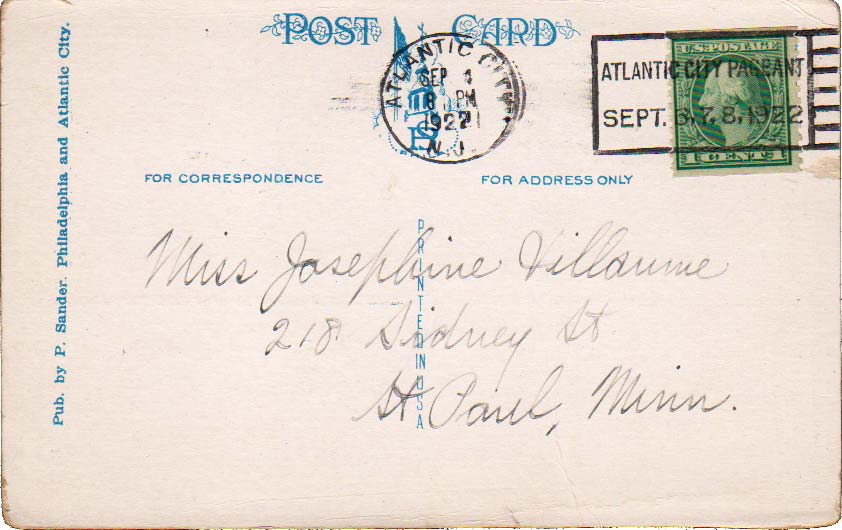 POST CARD
ATLANTIC CITY
SEP 4
8 PM
1922
N.J.
ATLANTIC CITY PAGEANT
SEPT. 6.7.8.1922
U.S. POSTAGE
1 CENT 1
FOR CORRESPONDENCE
FOR ADDRESS ONLY
Pub. by P. Sander. Philadelphia and Atlantic City.
PRINTED IN USA
Miss Josephine Villaume
218 Sidney St
St Paul, Minn.